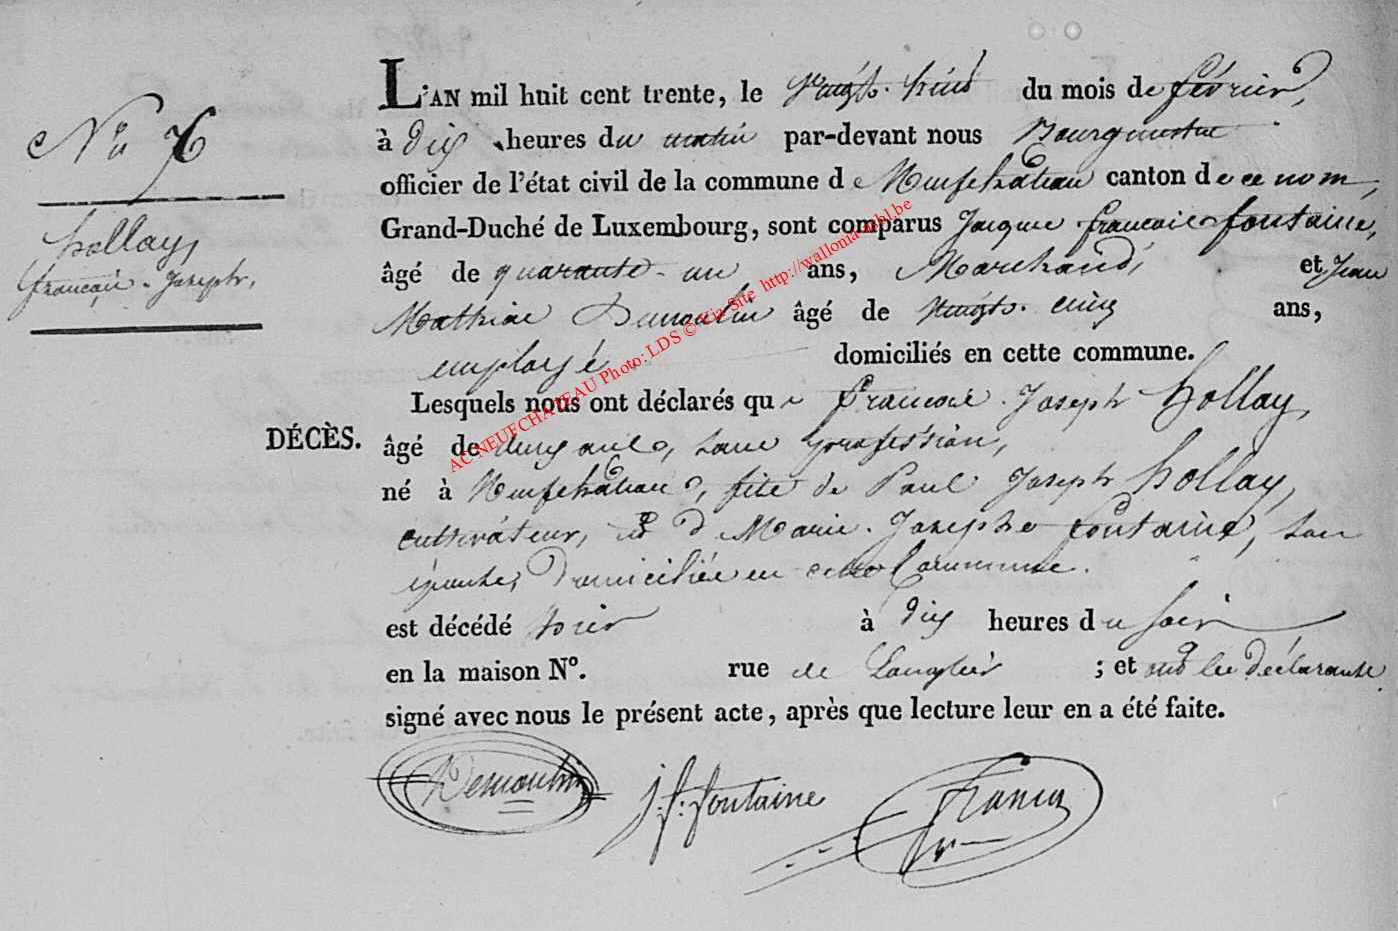 L'AN mil huit cent trente, le vingt-trois du mois de février,
à dix heures du matin par-devant nous Bourgmestre
officier de l'état civil de la commune de Neufchâteau canton de ce nom,
Grand-Duché de Luxembourg, sont comparus Jacque françois fontaine,
âgé de quarante-un ans, Marchand, et Jean
Mathieu Dumoulin âgé de vingt-cinq ans,
employé domiciliés en cette commune.
Lesquels nous ont déclarés que françois Joseph hollay,
DÉCÈS.
âgé de ans, sans profession,
né à Neufchâteau, fils de Paul Joseph hollay,
cultivateur, et d Marie-Josephe fontaine, son
épouse, Domiciliés en cette Commune.
est décédé hier à dix heures du soir
en la maison N°. rue de Longlier ; et ont les déclarants
signé avec nous le présent acte, après que lecture leur en a été faite.
Demoulin j.f. fontaine
No 7
hollay,
françois-Joseph,
AC NEUFCHATEAU Photo: LDS © Via Site http://wallonia-mbl.be